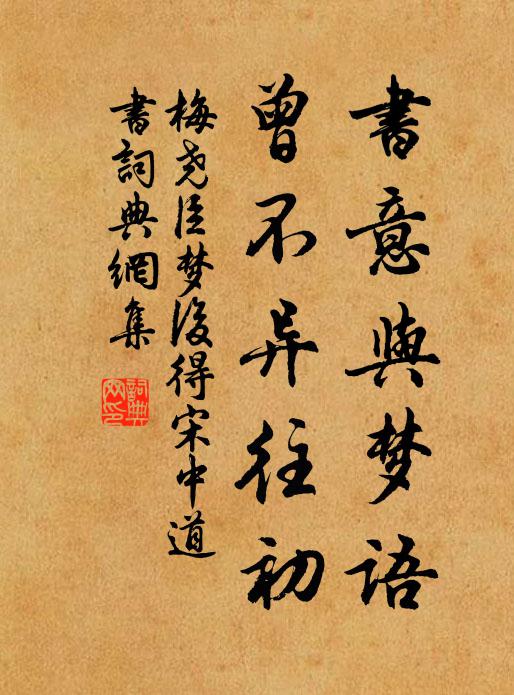 書意與梦語
曾不异往初
梅尧臣梦後得宋中道
書詞典網集
詞典
网印